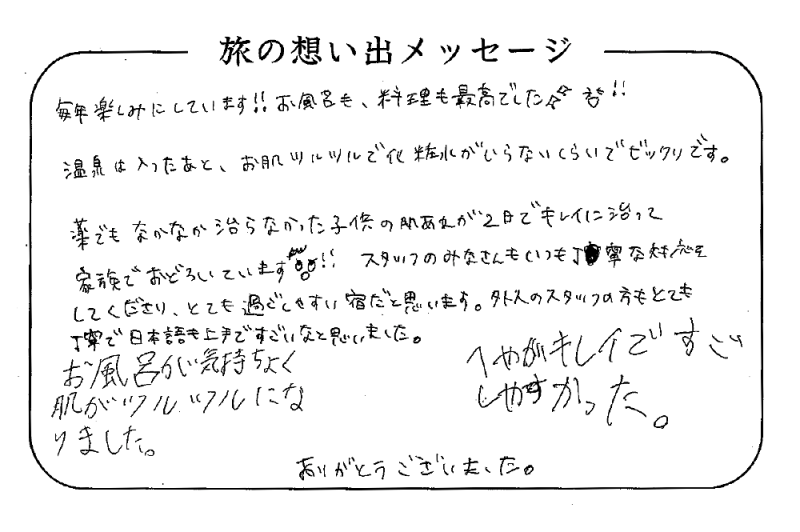 旅の想い出メッセージ
毎年楽しみにしています!! お風呂も、料理も最高でした!!
温泉は入ったあと、お肌ツルツルで化粧水がいらないくらいでビックリです。
薬でもなかなか治らなかった子供の肌あれが2日でキレイに治って
家族でおどろいています!! スタッフのみなさんもいつも丁寧な対応を
してくださり、とても過ごしやすい宿だと思います。外人のスタッフの方もとても
丁寧で日本語も上手ですごいなと思いました。
お風呂が気持ちよく
肌がツルツルにな
りました。
へやがキレイですご
しやすかった。
ありがとうございました。